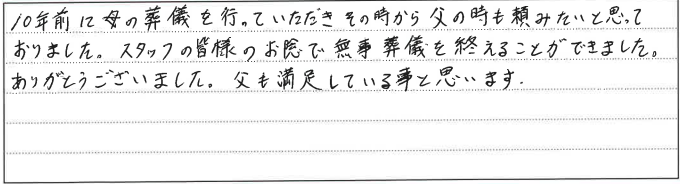 10年前に母の葬儀を行っていただきその時から父の時も頼みたいと思って
おりました。スタッフの皆様のお陰で無事葬儀を終えることができました。
ありがとうございました。父も満足している事と思います.